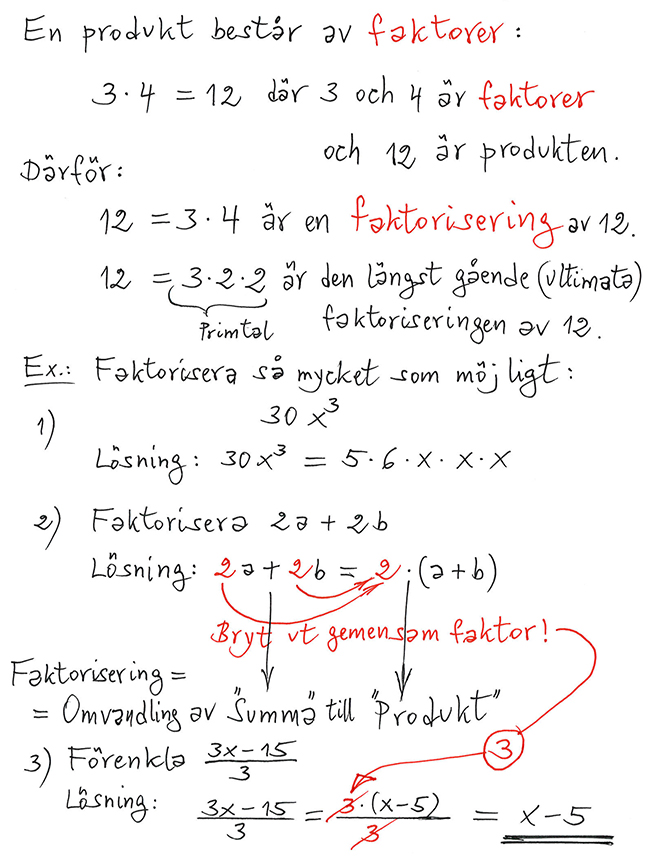 En produkt består av faktorer :
3 · 4 = 12 där 3 och 4 är faktorer
och 12 är produkten.
Därför :
12 = 3 · 4 är en faktorisering av 12.
12 = 3 · 2 · 2 är den längst gående (ultimata)
Primtal faktoriseringen av 12.
Ex.: Faktorisera så mycket som möjligt :
1) 30 x³
Lösning : 30x³ = 5 · 6 · x · x · x
2) Faktorisera 2a + 2b
Lösning : 2a + 2b = 2 · (a + b)
Bryt ut gemensam faktor !
Faktorisering =
= Omvandling av "Summa" till "Produkt"
3) Förenkla (3x − 15)/3
3
Lösning : (3x − 15)/3 = (3 · (x − 5))/3 = x − 5